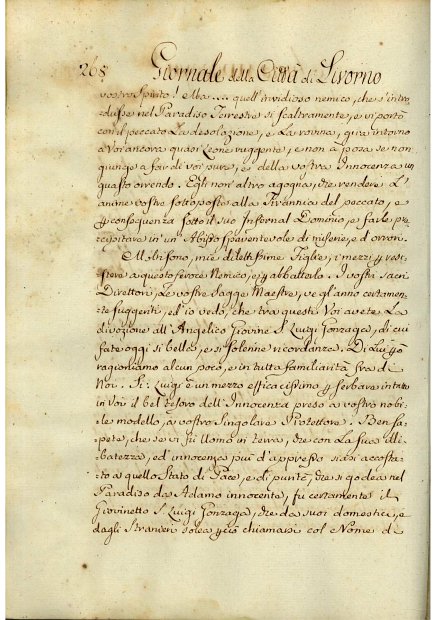 268 Giornale della Città di Livorno
vostro Spirito! Ma.... quell'invidioso nemico, che s'intro
dusse nel Paradiso Terrestre sì scaltramente, e vi portò
con il peccato La desolazione, e La rovina, gira intorno
a Voi ancora quasi Leone ruggente, e non à posa se non
giunge a far di voi pure, e della vostra Innocenza un
guasto orrendo. Egli non altro agogna, che rendere L'
anime vostre sottoposte alla Tirannia del peccato, e
conseguenza sotto il suo Infernal Dominio, e farle pre
cipitare in un Abisso spaventevole di miserie, e d'orrori.
Vi sono, mie dilettissime Figlie, i mezzi resi
stere a questo feroce Nemico, e abbatterlo. I vostri Sacri
Direttori, Le vostre Sagge Maestre, ve gl'anno certamen
te suggeriti, ed io vedo, che tra questi Voi avete La
divozione all'Angelico Giovine S. Luigi Gonzaga, di cui
fate oggi sì bella, e sì solenne ricordanza. Di Lui
ragioniamo alcun poco, e in tutta familiarità fra di
Noi. S. Luigi è un mezzo efficacissimo serbare intatto
in Voi il bel tesoro dell'Innocenza preso a vostro nobi
le modello, a vostro Singolare Protettore. Ben sa
pete, che se vi fu Uomo in terra, che con La sua illi
batezza, ed innocenza più d'appresso siasi accosta
to a quello Stato di Pace, e di purità, che si godea nel
Paradiso da Adamo innocente, fu certamente il
Giovinetto S. Luigi Gonzaga, che da suoi domestici, e
dagli Stranieri solea chiamarsi col Nome di